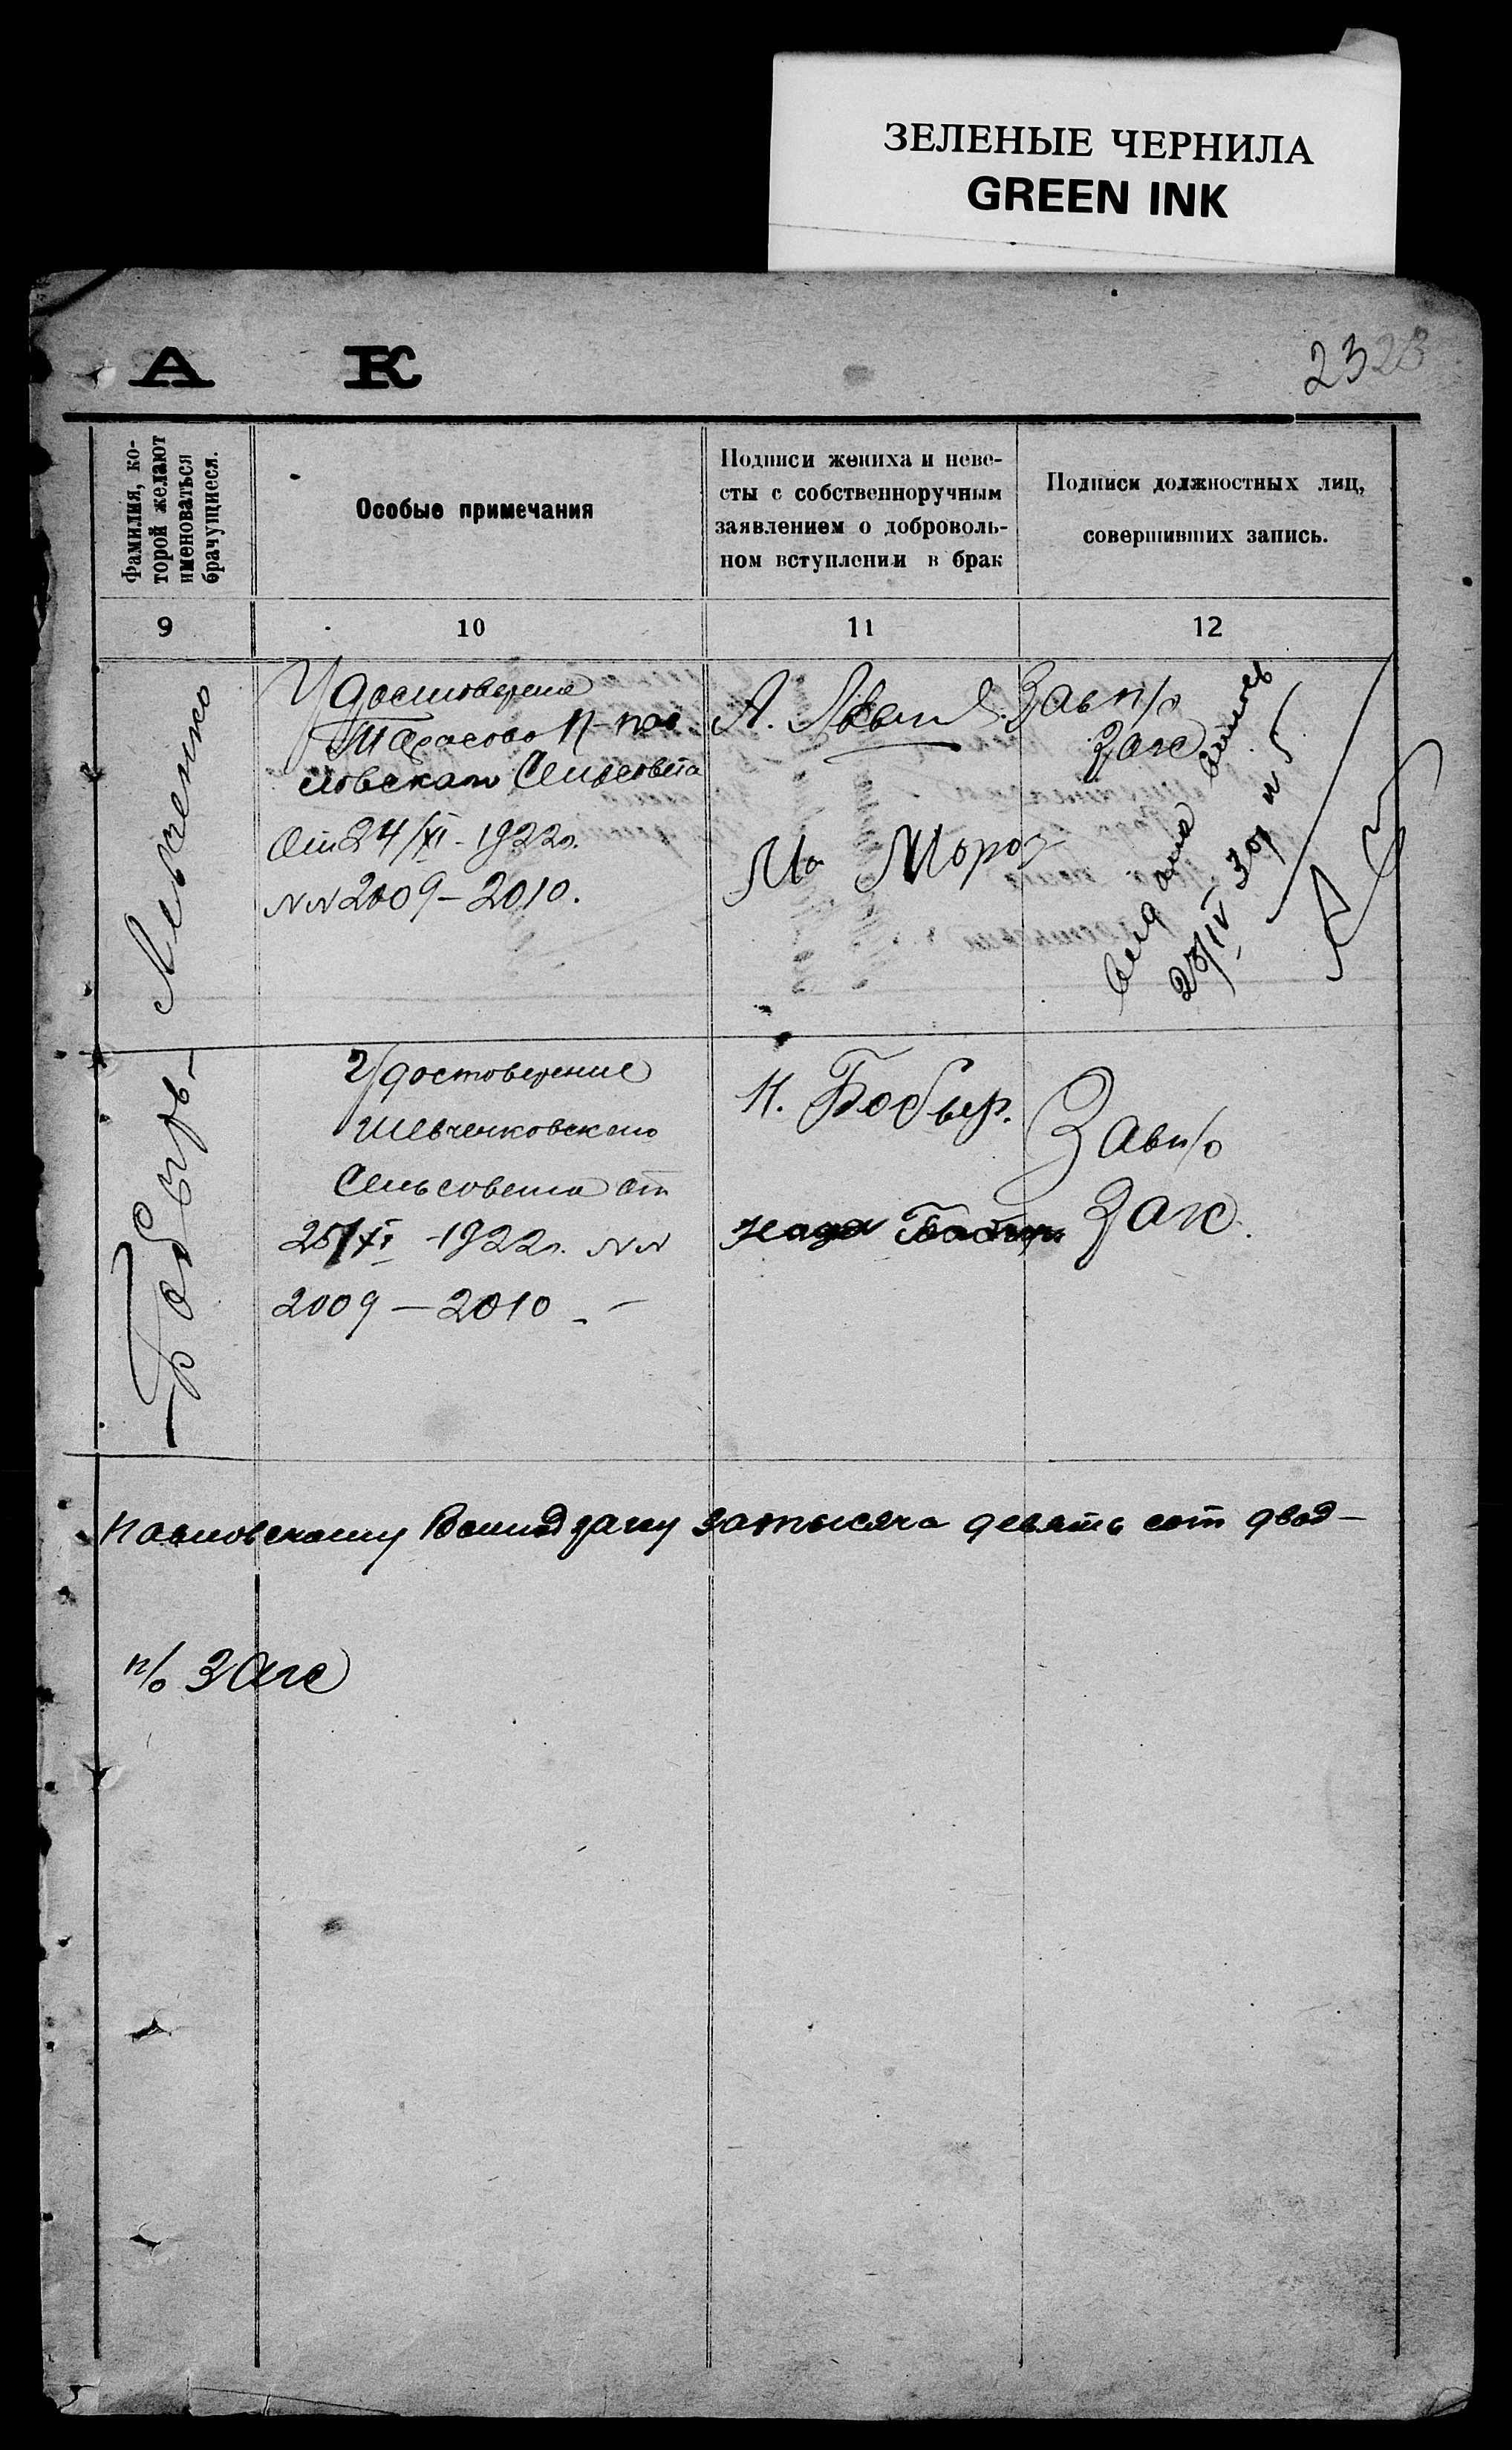 ЗЕЛЕНЫЕ ЧЕРНИЛА
GREEN INK
А К
23 23
Фамилия, ко-
торой желают
именоваться
брачущиеся.
Особые примечания
Подписи жениха и неве-
сты с собственноручным
заявлением о доброволь-
ном вступлении в брак
Подписи должностных лиц,
совершивших запись.
9
10
11
12
Левченко
Удостоверение
Тарасово
Сельсовета
От 24/XI - 1922 г.
NN 2009 - 2010.
А.
Ма Мороз
Зав п/о
Загс
Выдана
28/IV 30 г
Бобырь-
Удостоверение
Шевченковского
Сельсовета от
25/XI - 1922 г. NN
2009 - 2010 -
Н. Бобыр.
Надя Бобырь
Зав п/о
Загс.
за тысяча девять сот двад-
п/о Загс